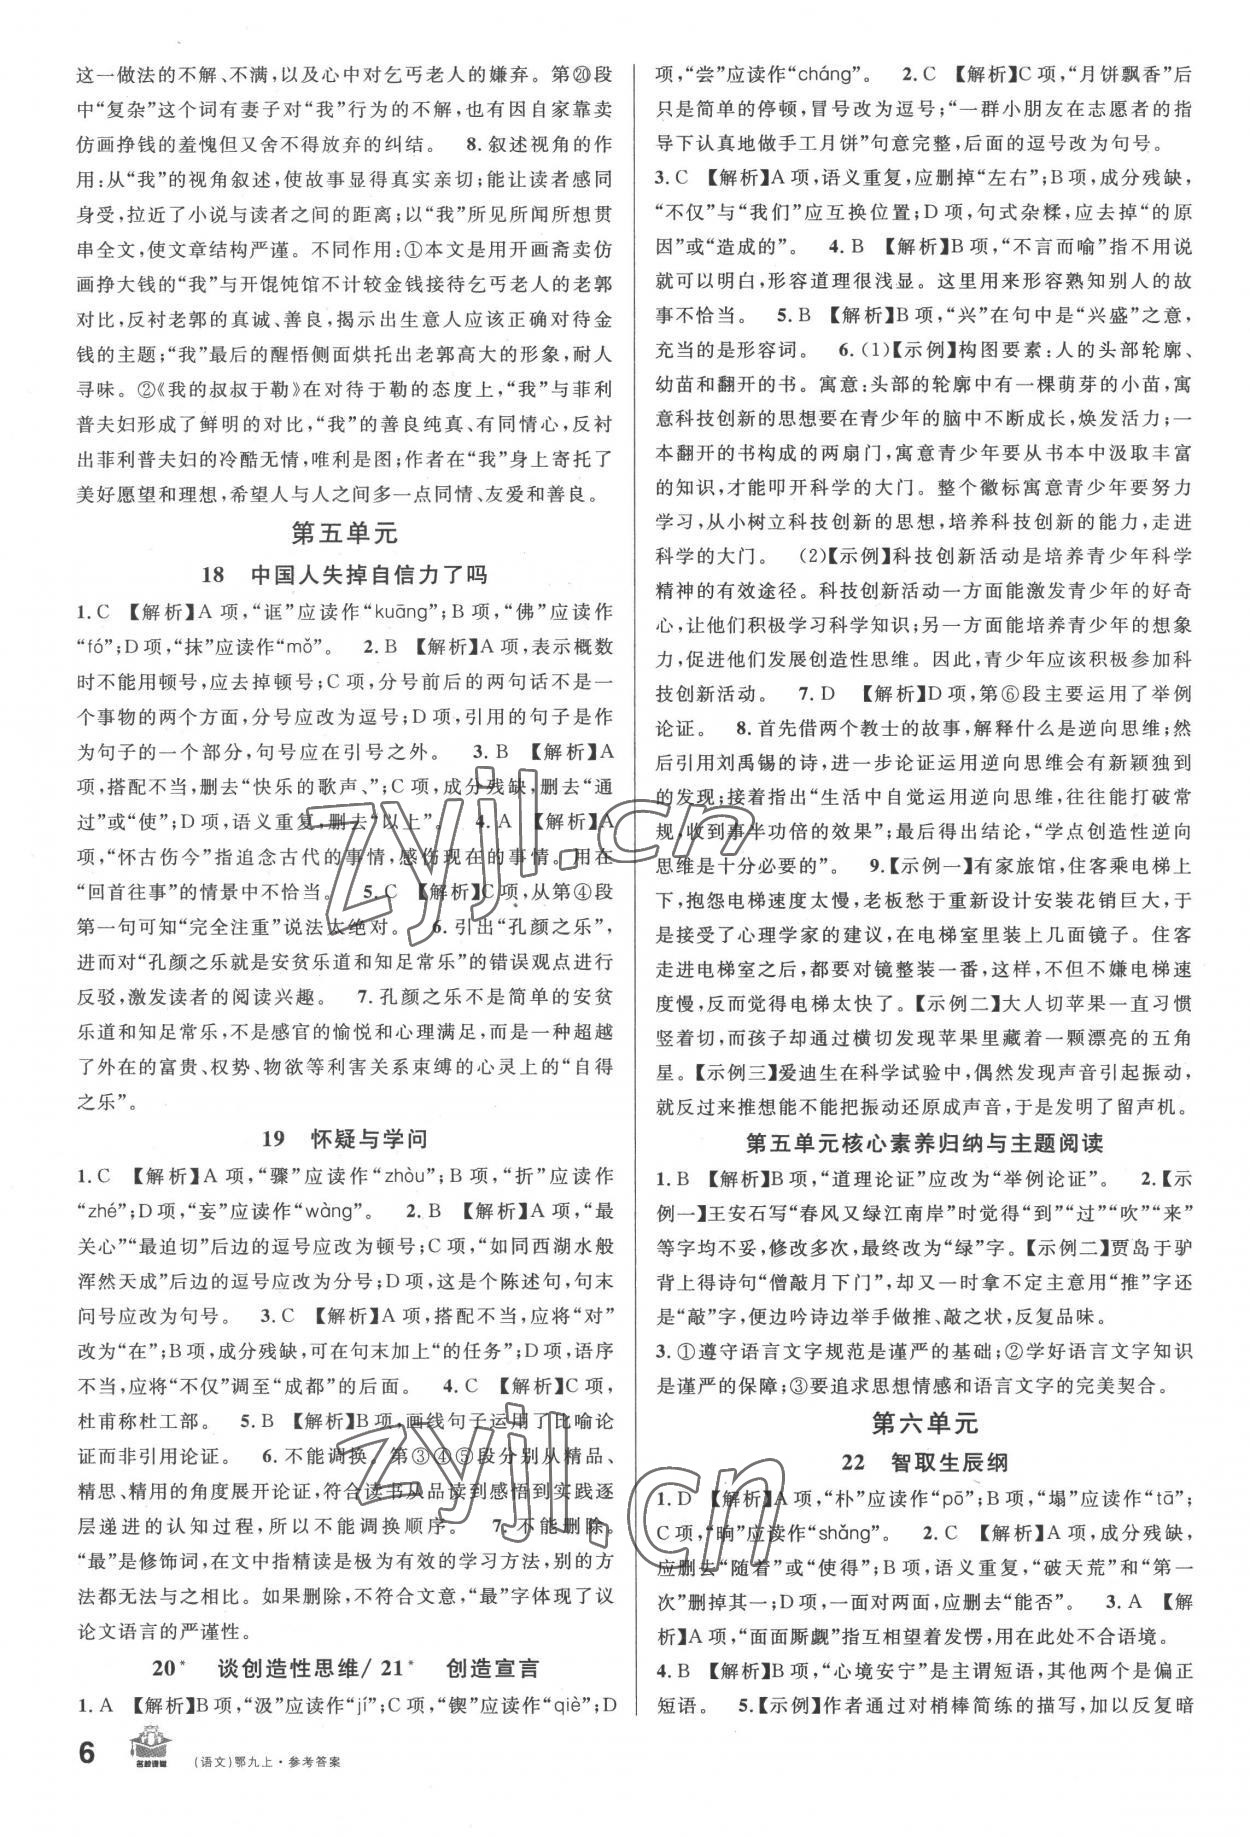 这一做法的不解、不满,以及心中对乞丐老人的嫌弃。第⑳段
中“复杂”这个词有妻子对“我”行为的不解,也有因自家靠卖
仿画挣钱的羞愧但又舍不得放弃的纠结。 8. 叙述视角的作
用:从“我”的视角叙述,使故事显得真实亲切;能让读者感同
身受,拉近了小说与读者之间的距离;以“我”所见所闻所想贯
串全文,使文章结构严谨。不同作用:①本文是用开画斋卖仿
画挣大钱的“我”与开馄饨馆不计较金钱接待乞丐老人的老郭
对比,反衬老郭的真诚、善良,揭示出生意人应该正确对待金
钱的主题;“我”最后的醒悟侧面烘托出老郭高大的形象,耐人
寻味。②《我的叔叔于勒》在对待于勒的态度上,“我”与菲利
普夫妇形成了鲜明的对比,“我”的善良纯真、有同情心,反衬
出菲利普夫妇的冷酷无情,唯利是图;作者在“我”身上寄托了
美好愿望和理想,希望人与人之间多一点同情、友爱和善良。
第五单元
18 中国人失掉自信力了吗
1. C 【解析】A 项,“诓”应读作“kuāng”;B 项,“佛”应读作
“fó”;D 项,“抹”应读作“mǒ”。 2. B 【解析】A 项,表示概数
时不能用顿号,应去掉顿号;C 项,分号前后的两句话不是一
个事物的两个方面,分号应改为逗号;D 项,引用的句子是作
为句子的一个部分,句号应在引号之外。 3. B 【解析】A
项,搭配不当,删去“快乐的歌声、”;C 项,成分残缺,删去“通
过”或“使”;D 项,语义重复,删去“以上”。 4. A 【解析】A
项,“怀古伤今”指追念古代的事情,感伤现在的事情。用在
“回首往事”的情景中不恰当。 5. C 【解析】C 项,从第④段
第一句可知“完全注重”说法太绝对。 6. 引出“孔颜之乐”,
进而对“孔颜之乐就是安贫乐道和知足常乐”的错误观点进行
反驳,激发读者的阅读兴趣。 7. 孔颜之乐不是简单的安贫
乐道和知足常乐,不是感官的愉悦和心理满足,而是一种超越
了外在的富贵、权势、物欲等利害关系束缚的心灵上的“自得
之乐”。
19 怀疑与学问
1. C 【解析】A 项,“骤”应读作“zhòu”;B 项,“折”应读作
“zhé”;D 项,“妄”应读作“wàng”。 2. B 【解析】A 项,“最
关心”“最迫切”后边的逗号应改为顿号;C 项,“如同西湖水般
浑然天成”后边的逗号应改为分号;D 项,这是个陈述句,句末
问号应改为句号。 3. C 【解析】A 项,搭配不当,应将“对”
改为“在”;B 项,成分残缺,可在句末加上“的任务”;D 项,语序
不当,应将“不仅”调至“成都”的后面。 4. C 【解析】C 项,
杜甫称杜工部。 5. B 【解析】B 项,画线句子运用了比喻论
证而非引用论证。 6. 不能调换。第③④⑤段分别从精品、
精思、精用的角度展开论证,符合读书从品读到感悟到实践逐
层递进的认知过程,所以不能调换顺序。 7. 不能删除。
“最”是修饰词,在文中指精读是极为有效的学习方法,别的方
法都无法与之相比。如果删除,不符合文意,“最”字体现了议
论文语言的严谨性。
20* 谈创造性思维/ 21* 创造宣言
1. A 【解析】B 项,“汲”应读作“jí”;C 项,“锲”应读作“qiè”;D
项,“尝”应读作“cháng”。 2. C 【解析】C 项,“月饼飘香”后
只是简单的停顿,冒号改为逗号;“一群小朋友在志愿者的指
导下认真地做手工月饼”句意完整,后面的逗号改为句号。
3. C 【解析】A 项,语义重复,应删掉“左右”;B 项,成分残缺,
“不仅”与“我们”应互换位置;D 项,句式杂糅,应去掉“的原
因”或“造成的”。 4. B 【解析】B 项,“不言而喻”指不用说
就可以明白,形容道理很浅显。这里用来形容熟知别人的故
事不恰当。 5. B 【解析】B 项,“兴”在句中是“兴盛”之意,
充当的是形容词。 6. (1)【示例】构图要素:人的头部轮廓、
幼苗和翻开的书。寓意:头部的轮廓中有一棵萌芽的小苗,寓
意科技创新的思想要在青少年的脑中不断成长,焕发活力;一
本翻开的书构成的两扇门,寓意青少年要从书本中汲取丰富
的知识,才能叩开科学的大门。整个徽标寓意青少年要努力
学习,从小树立科技创新的思想,培养科技创新的能力,走进
科学的大门。 (2)【示例】科技创新活动是培养青少年科学
精神的有效途径。科技创新活动一方面能激发青少年的好奇
心,让他们积极学习科学知识;另一方面能培养青少年的想象
力,促进他们发展创造性思维。因此,青少年应该积极参加科
技创新活动。 7. D 【解析】D 项,第⑥段主要运用了举例
论证。 8. 首先借两个教士的故事,解释什么是逆向思维;然
后引用刘禹锡的诗,进一步论证运用逆向思维会有新颖独到
的发现;接着指出“生活中自觉运用逆向思维,往往能打破常
规,收到事半功倍的效果”;最后得出结论,“学点创造性逆向
思维是十分必要的”。 9.【示例一】有家旅馆,住客乘电梯上
下,抱怨电梯速度太慢,老板愁于重新设计安装花销巨大,于
是接受了心理学家的建议,在电梯室里装上几面镜子。住客
走进电梯室之后,都要对镜整装一番,这样,不但不嫌电梯速
度慢,反而觉得电梯太快了。【示例二】大人切苹果一直习惯
竖着切,而孩子却通过横切发现苹果里藏着一颗漂亮的五角
星。【示例三】爱迪生在科学试验中,偶然发现声音引起振动,
就反过来推想能不能把振动还原成声音,于是发明了留声机。
第五单元核心素养归纳与主题阅读
1. B 【解析】B 项,“道理论证”应改为“举例论证”。 2.【示
例一】王安石写“春风又绿江南岸”时觉得“到”“过”“吹”“来”
等字均不妥,修改多次,最终改为“绿”字。【示例二】贾岛于驴
背上得诗句“僧敲月下门”,却又一时拿不定主意用“推”字还
是“敲”字,便边吟诗边举手做推、敲之状,反复品味。
3. ①遵守语言文字规范是谨严的基础;②学好语言文字知识
是谨严的保障;③要追求思想情感和语言文字的完美契合。
第六单元
22 智取生辰纲
1. D 【解析】A 项,“朴”应读作“pō”;B 项,“塌”应读作“tā”;
C 项,“晌”应读作“shǎng”。 2. C 【解析】A 项,成分残缺,
应删去“随着”或“使得”;B 项,语义重复,“破天荒”和“第一
次”删掉其一;D 项,一面对两面,应删去“能否”。 3. A 【解
析】A 项,“面面厮觑”指互相望着发愣,用在此处不合语境。
4. B 【解析】B 项,“心境安宁”是主谓短语,其他两个是偏正
短语。 5.【示例】作者通过对梢棒简练的描写,加以反复暗
6
名校课堂
(语文)鄂九上·参考答案
zyjl.cn
zyjl.cn